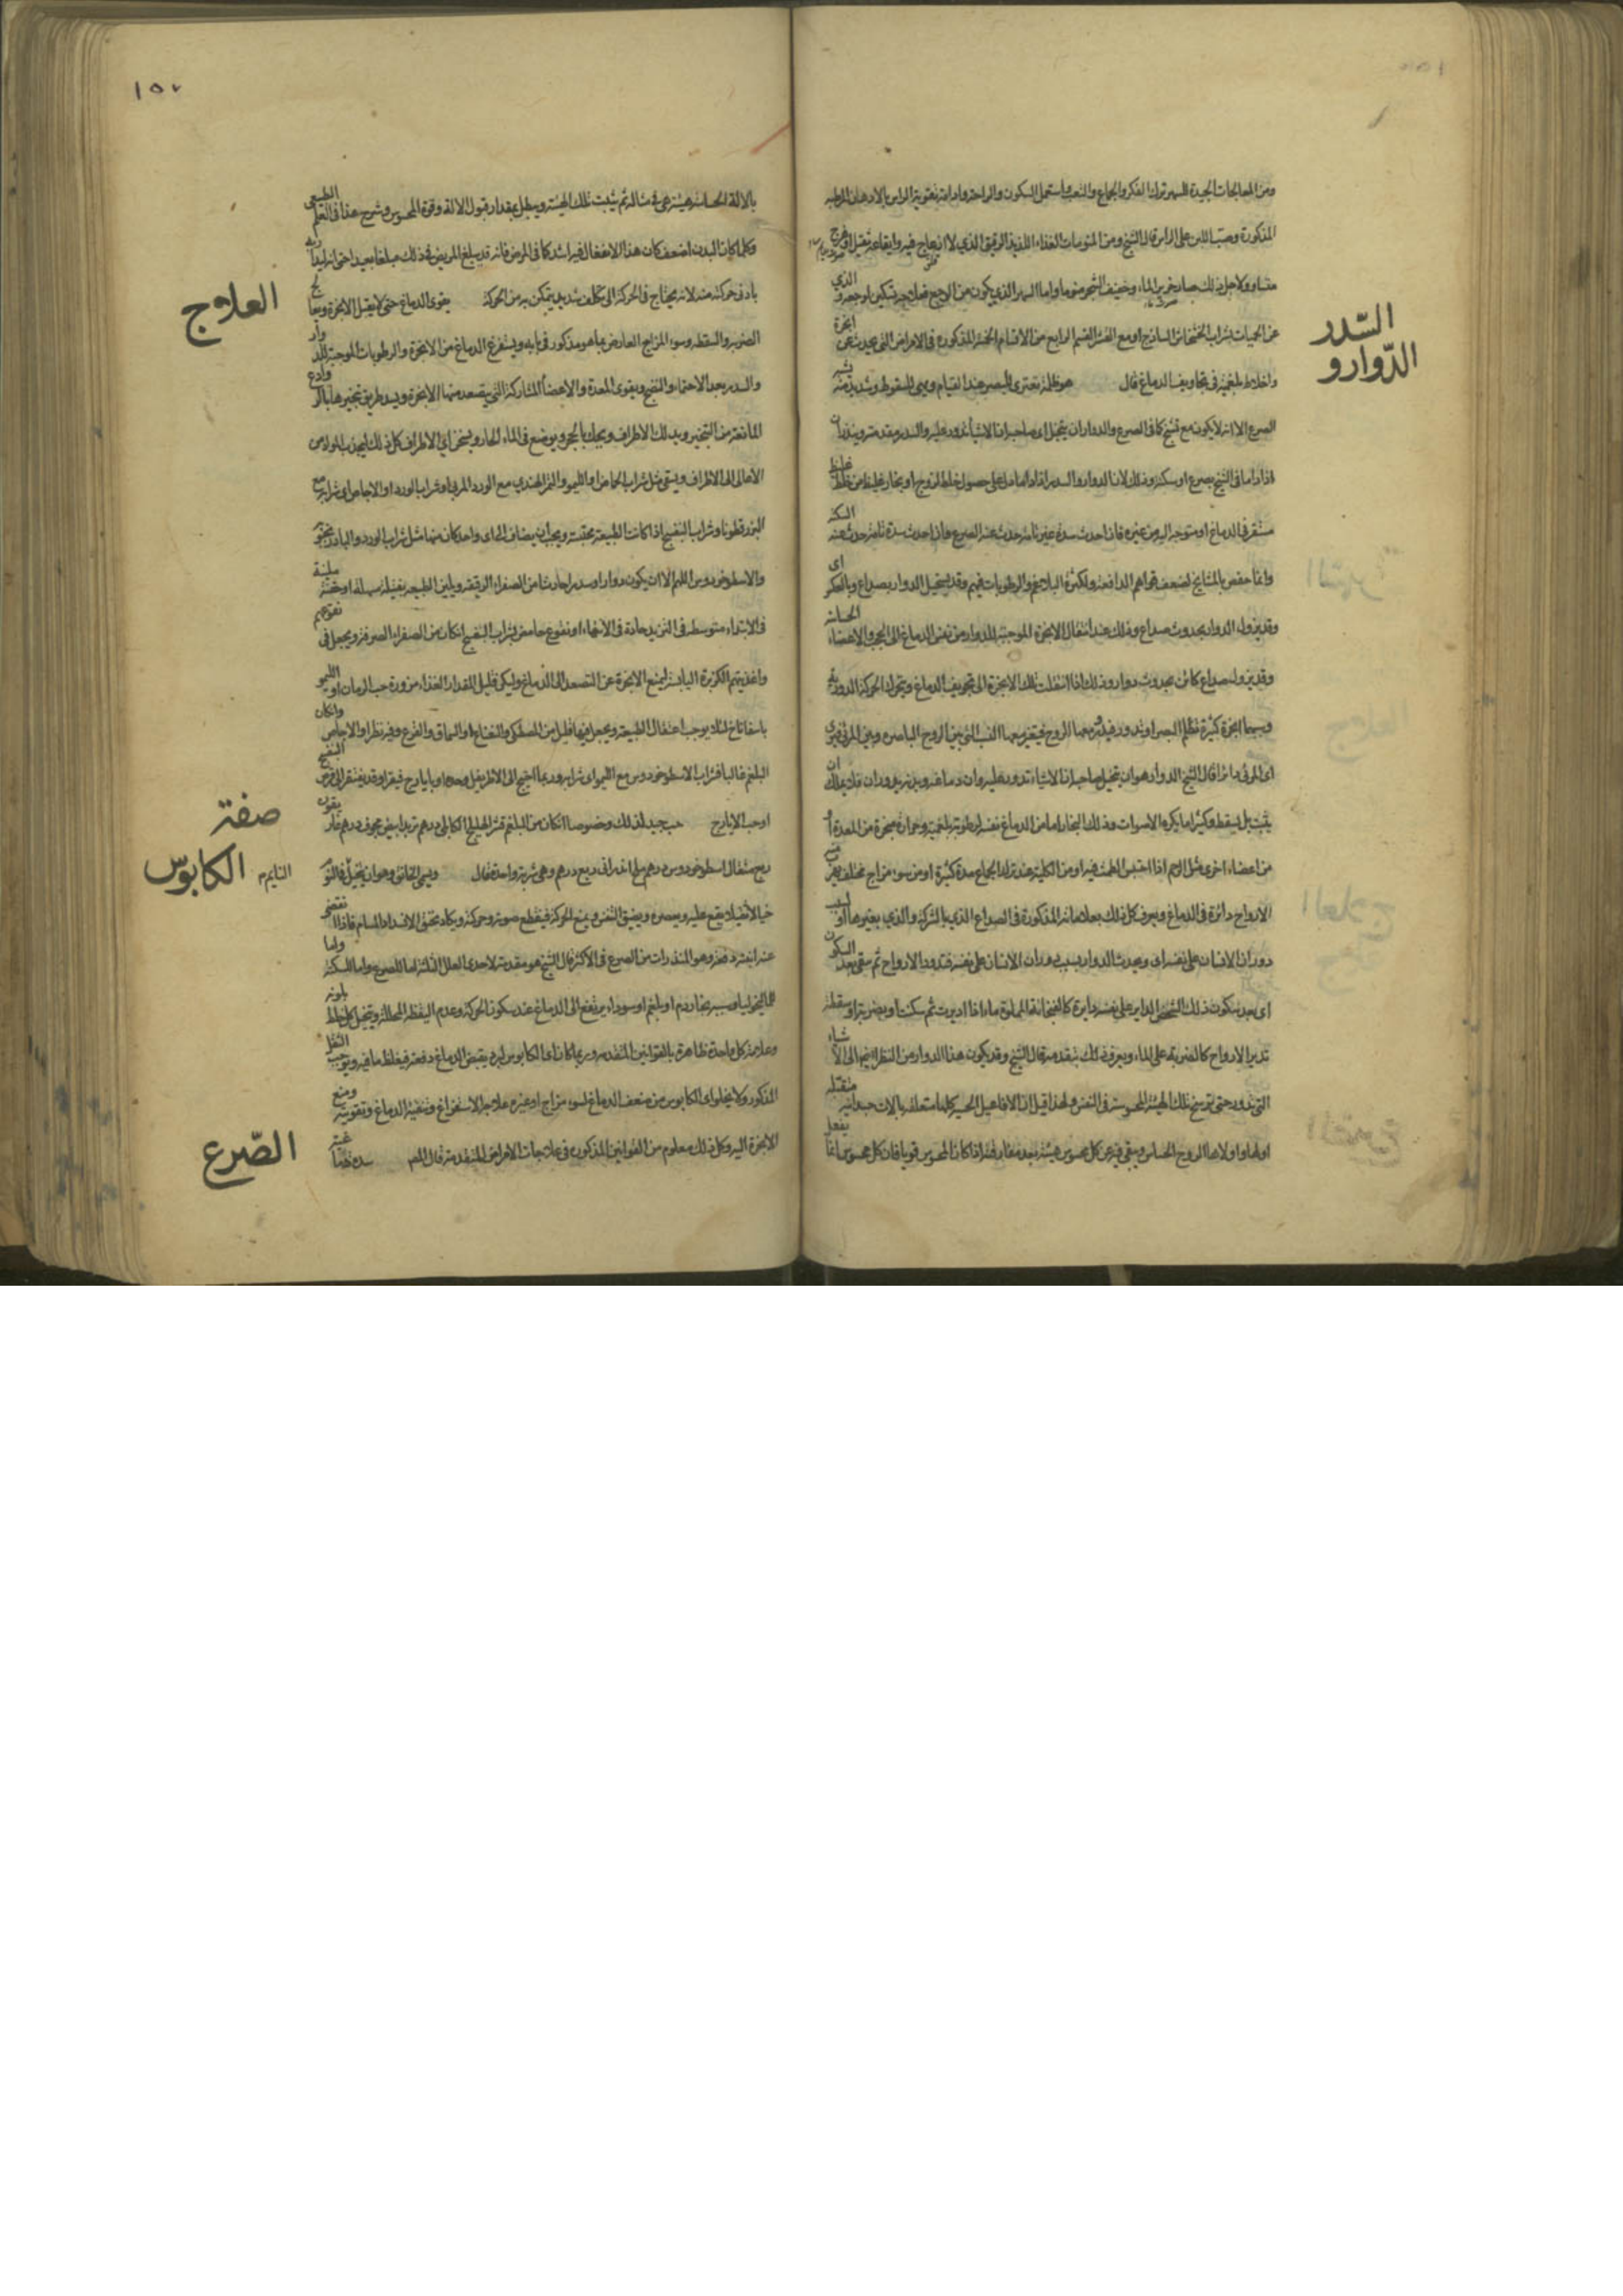 ومن المعالجات الجيدة للسهر ترك الفكر والجماع والتعب واستعمال السكون والراحة وادامة تغريق الراس بالادهان المرطبة
المذكورة وصب اللبن على الراس قال الشيخ ومن المنومات الغذاء اللذيذ الرقيق الذي لا ازعاج فيه وايقاعه ثقيل او هزج
متساو ولاجل ذلك صار خرير الماء وحفيف الشجر منوما واما السهر الذي يكون من الوجع فعلاجه تسكين الوجع والذي
عن الحميات بشراب الخشخاش الساذج او مع القسم الرابع من الاقسام الخمسة المذكورة في الامراض التي يحدث عن ابخرة
واخلاط بلغمية في تجاويف الدماغ قال هو ظلمة تعتري البصر عند القيام ويهيئ للسقوط وشديده يشبه
السدر
والدوار
الصرع الا انه لا يكون مع تشنج كما في الصرع والدوار ان يتخيل اي صاحبه ان الاشياء تدور عليه والسدر مقدمته وينذران
اذا داما في الشيخ بصرع او سكتة وذلك لان الدوار والسدر اذا داما دل على حصول خلط لزوج او بخار غليظ من خلط غليظ
مستقر في الدماغ او متوجه اليه من غيره فاذا احدث سدة غير تامة حدث عنه الصرع واذا احدث سدة تامة حدث عنه السكتة
وانما خص بالمشايخ لضعف قواهم الدافعة ولكثرة البلاغم والرطوبات فيهم وقد يستحيل الدوار بصداع اي وبالعكس
وقد يزول الدوار بحدوث صداع وذلك عند انتقال الابخرة الموجبة للدوار من نفس الدماغ الى الحجب والاغشية الحساسة
وقد يزول صداع كائن بحدوث دوار وذلك اذا انتقلت تلك الابخرة الى تجويف الدماغ ويتحرك الحركة الدورية
اي المرئي دائرا قال الشيخ الدوار هو ان يتخيل صاحبه ان الاشياء تدور عليه وان دماغه وبدنه يدوران فلا يملك ان
يثبت بل يسقط وكثيرا ما يكره الاصوات وذلك البخار اما من الدماغ نفسه لرطوبة بلغمية وحرارة مبخرة من المعدة او
من اعضاء اخرى مثل الرحم اذا احتبس الطمث فيه او من الكلية عند ترك الجماع مدة كثيرة او من سوء مزاج مختلف
الارواح دائرة في الدماغ ويعرف كل ذلك بعلاماته المذكورة في الصداع الذي بالشركة والذي بغيرها او
دوران الانسان على نفسه اي ويحدث الدوار بسبب دوران الانسان على نفسه فتدور الارواح ثم يبقى بعد السكون
اي بعد سكون ذلك الشخص الداير على نفسه دايرة كالفنجانة المملوة ماء اذا اديرت ثم سكنت او بضربة او سقطة
تدير الارواح كالضربة على الماء ويعرف ذلك بتقدمه قال الشيخ وقد يكون هذا الدوار من النظر الى الاشياء
التي تدور حتى ترسخ تلك الهيئة المحسوسة في النفس ولهذا قيل ان الافاعيل الحسية كلها متعلقة بالات جسدانية منفعلة
اولها واولاها الروح الحساس ويبقى فيه عن كل محسوس هيئة بعد مفارقته اذا كان المحسوس قويا فان كل محسوس انما يفعل
١٥٧
بالالة الحساسة هيئة هي في مثاله ثم تثبت تلك الهيئة ويبطل بمقدار قبول الالة وقوة المحسوس وشرح هذا في العلم الطبيعي
وكلما كان البدن اضعف كان هذا الانفعال فيه اشد كما في المرض فانه قد يبلغ المريض في ذلك مبلغا بعيدا حتى انه
بادنى حركة منه لانه يحتاج في الحركة الى تكلف شديد يتمكن به من الحركة يقوى الدماغ حتى لا يقبل الابخرة ويعالج
العلاج
الضربة والسقطة وسوء المزاج العارض بما هو مذكور في بابه ويستفرغ الدماغ من الابخرة والرطوبات الموجبة للدوار
والسدر بعد الاحتماء والنضج ويقوى المعدة والاعضاء المشاركة التي يتصعد منها الابخرة ويسد طريق تبخيرها
المانعة من التبخير ويدلك الاطراف ويحك بالحجر ويوضع في الماء الحار ويسخن اي الاطراف كل ذلك ليجذب المواد من
الاعالى الى الاطراف ويسقى مثل شراب الحماض والليمو والتمر الهندي مع الورد المربى او شراب الورد او الاجاص اي شرابه مع
البزرقطونا وشراب البنفسج اذا كانت الطبيعة محتبسة ويجب ان يضاف الى اي واحد كان منها مثل شراب الورد
والاسطوخودوس اللهم الا ان يكون دوار او سدر حادثا من الصفراء الرقيقة ويلين الطبيعة بفتيلة مسهلة او حقنة ملينة
في الابتداء متوسطة في التزيد حادة في الانتهاء او نقوع حامض بشراب البنفسج ان كان من الصفراء الصرفة ويجعل في نقوعهم
واغذيتهم الكزبرة اليابسة ليمنع الابخرة عن التصعد الى الدماغ وليكن قليل المقدار الغذاء مزورة حب الرمان او الليمو
باسفاناخ لئلا يوجب اعتقال الطبيعة ويجعل فيها قليل من المصطكى والنعناع او السماق والقرع وفيه نظر او الاجاص وان كان
البلغم غالبا فشراب الاسطوخودوس مع الليمو اي شرابه وربما احتيج الى الاطريفل وحده او بايارج فيقرا وقد يفتقر الى قرص البنفسج
او حب الايارج حب جيد لذلك وخصوصا ان كان من البلغم قشر اهليلج كابلي درهم تربد ابيض مجوف درهم
صفة
ربع مثقال اسطوخودوس درهم ملح اندراني ربع درهم وهي شربة واحدة قال ويسمى الخانق وهو ان يتخيل في النوم
الكابوس
النايم
خيالا ثقيلا يقع عليه ويعصره ويضيق النفس ويمنع الحركة فينقطع صوته وحركته ويكاد يختنق لانسداد المسام فاذا انقضى
عنه انتبه دفعة وهو المنذرات من الصرع في الاكثر قال الشيخ هو مقدمة لاحدى العلل الثلاث اما للصرع واما للسكتة واما
للماليخوليا وسببه بخار دم او بلغم او سوداء يرتفع الى الدماغ عند سكون الحركة وعدم اليقظة المحللة ويتخيل كل خلط بلونه
وعلامة كل واحدة ظاهرة بالقوانين المتقدمة وربما كان اي الكابوس لبرد يقبض الدماغ دفعة فيغلظ ما فيه ويوجب الثقل
المذكور ولا يخلو اي الكابوس من ضعف الدماغ لسوء مزاج او غيره علاجه الاستفراغ وتنقية الدماغ وتقويته ومنع
الابخرة اليه وكل ذلك معلوم من القوانين المذكورة في علاجات الامراض المتقدمة قال المص سدة
الصرع